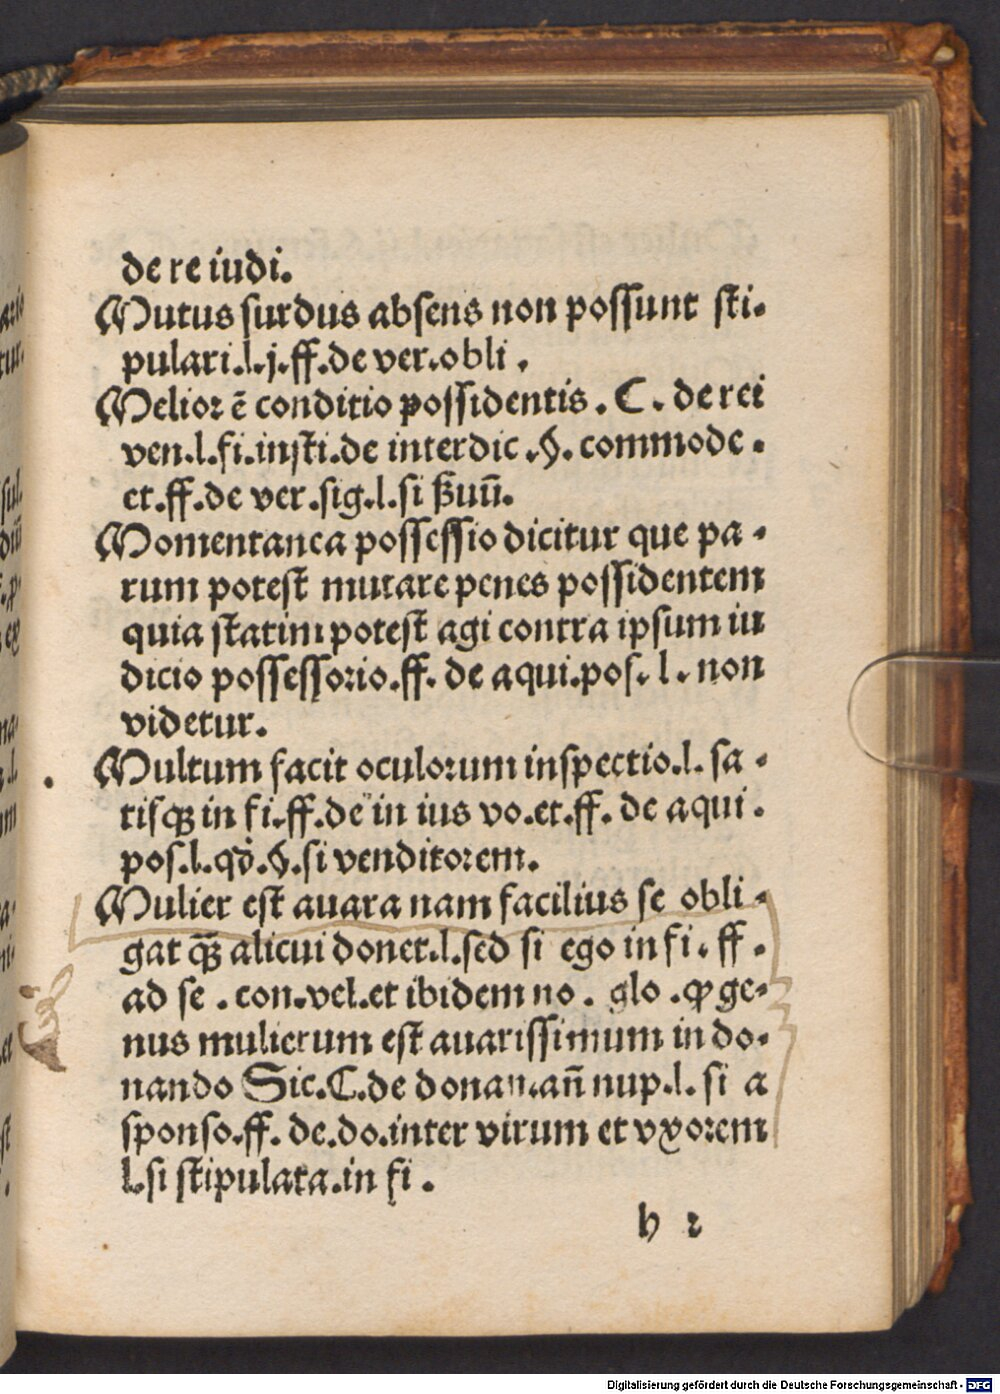 de re iudi.
Mutus surdus absens non possunt sti-
pulari.l.j.ff.de ver.obli.
Melior ē conditio possidentis. C. de rei
ven.l.fi.insti.de interdic.§. commode.
et.ff.de ver.sig.l.si
Momentanea possessio dicitur que pa-
rum potest mutare penes possidentem
quia statim potest agi contra ipsum iu
dicio possessorio.ff. de aqui.pos. l. non
videtur.
Multum facit oculorum inspectio.l. sa-
tisqꝫ in fi.ff.de in ius vo.et.ff. de aqui.
pos.l.qď.§.si venditorem.
Mulier est auara nam facilius se obli-
gat qꝫ̄ alicui donet.l.sed si ego in fi. ff.
ad se. con.vel.et ibidem no. glo. ꝙ ge-
nus mulierum est auarissimum in do-
nando Sic.C.de dona.an̄ nup.l. si a
sponso.ff. de.do.inter virum et vxorem
l.si stipulata.in fi.
h 2
Digitalisierung gefördert durch die Deutsche Forschungsgemeinschaft - DFG